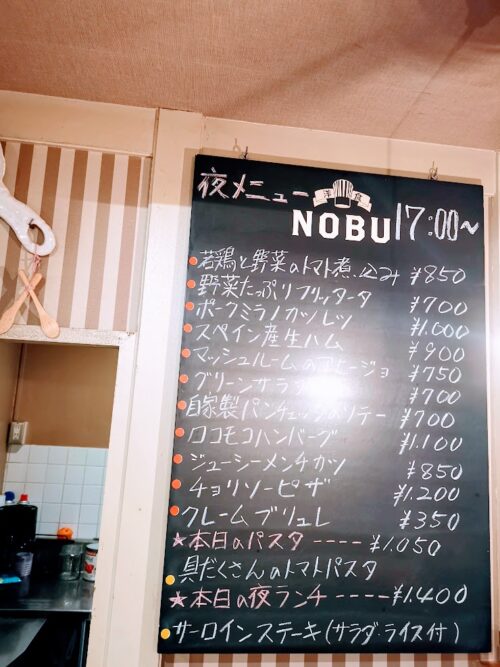 夜メニュー 洋食 NOBU 17:00~
若鶏と野菜のトマト煮込み ¥850
野菜たっぷりフリッタータ ¥700
ポークミラノカツレツ ¥1.000
スペイン産生ハム ¥900
マッシュルームのアヒージョ ¥750
グリーンサラダ ¥700
自家製パンチェッタのソテー ¥700
ロコモコハンバーグ ¥1.100
ジューシーメンチカツ ¥850
チョリソーピザ ¥1.200
クレームブリュレ ¥350
★本日のパスタ ---- ¥1.050
具だくさんのトマトパスタ
★本日の夜ランチ ----- ¥1.400
サーロインステーキ(サラダ・ライス付)